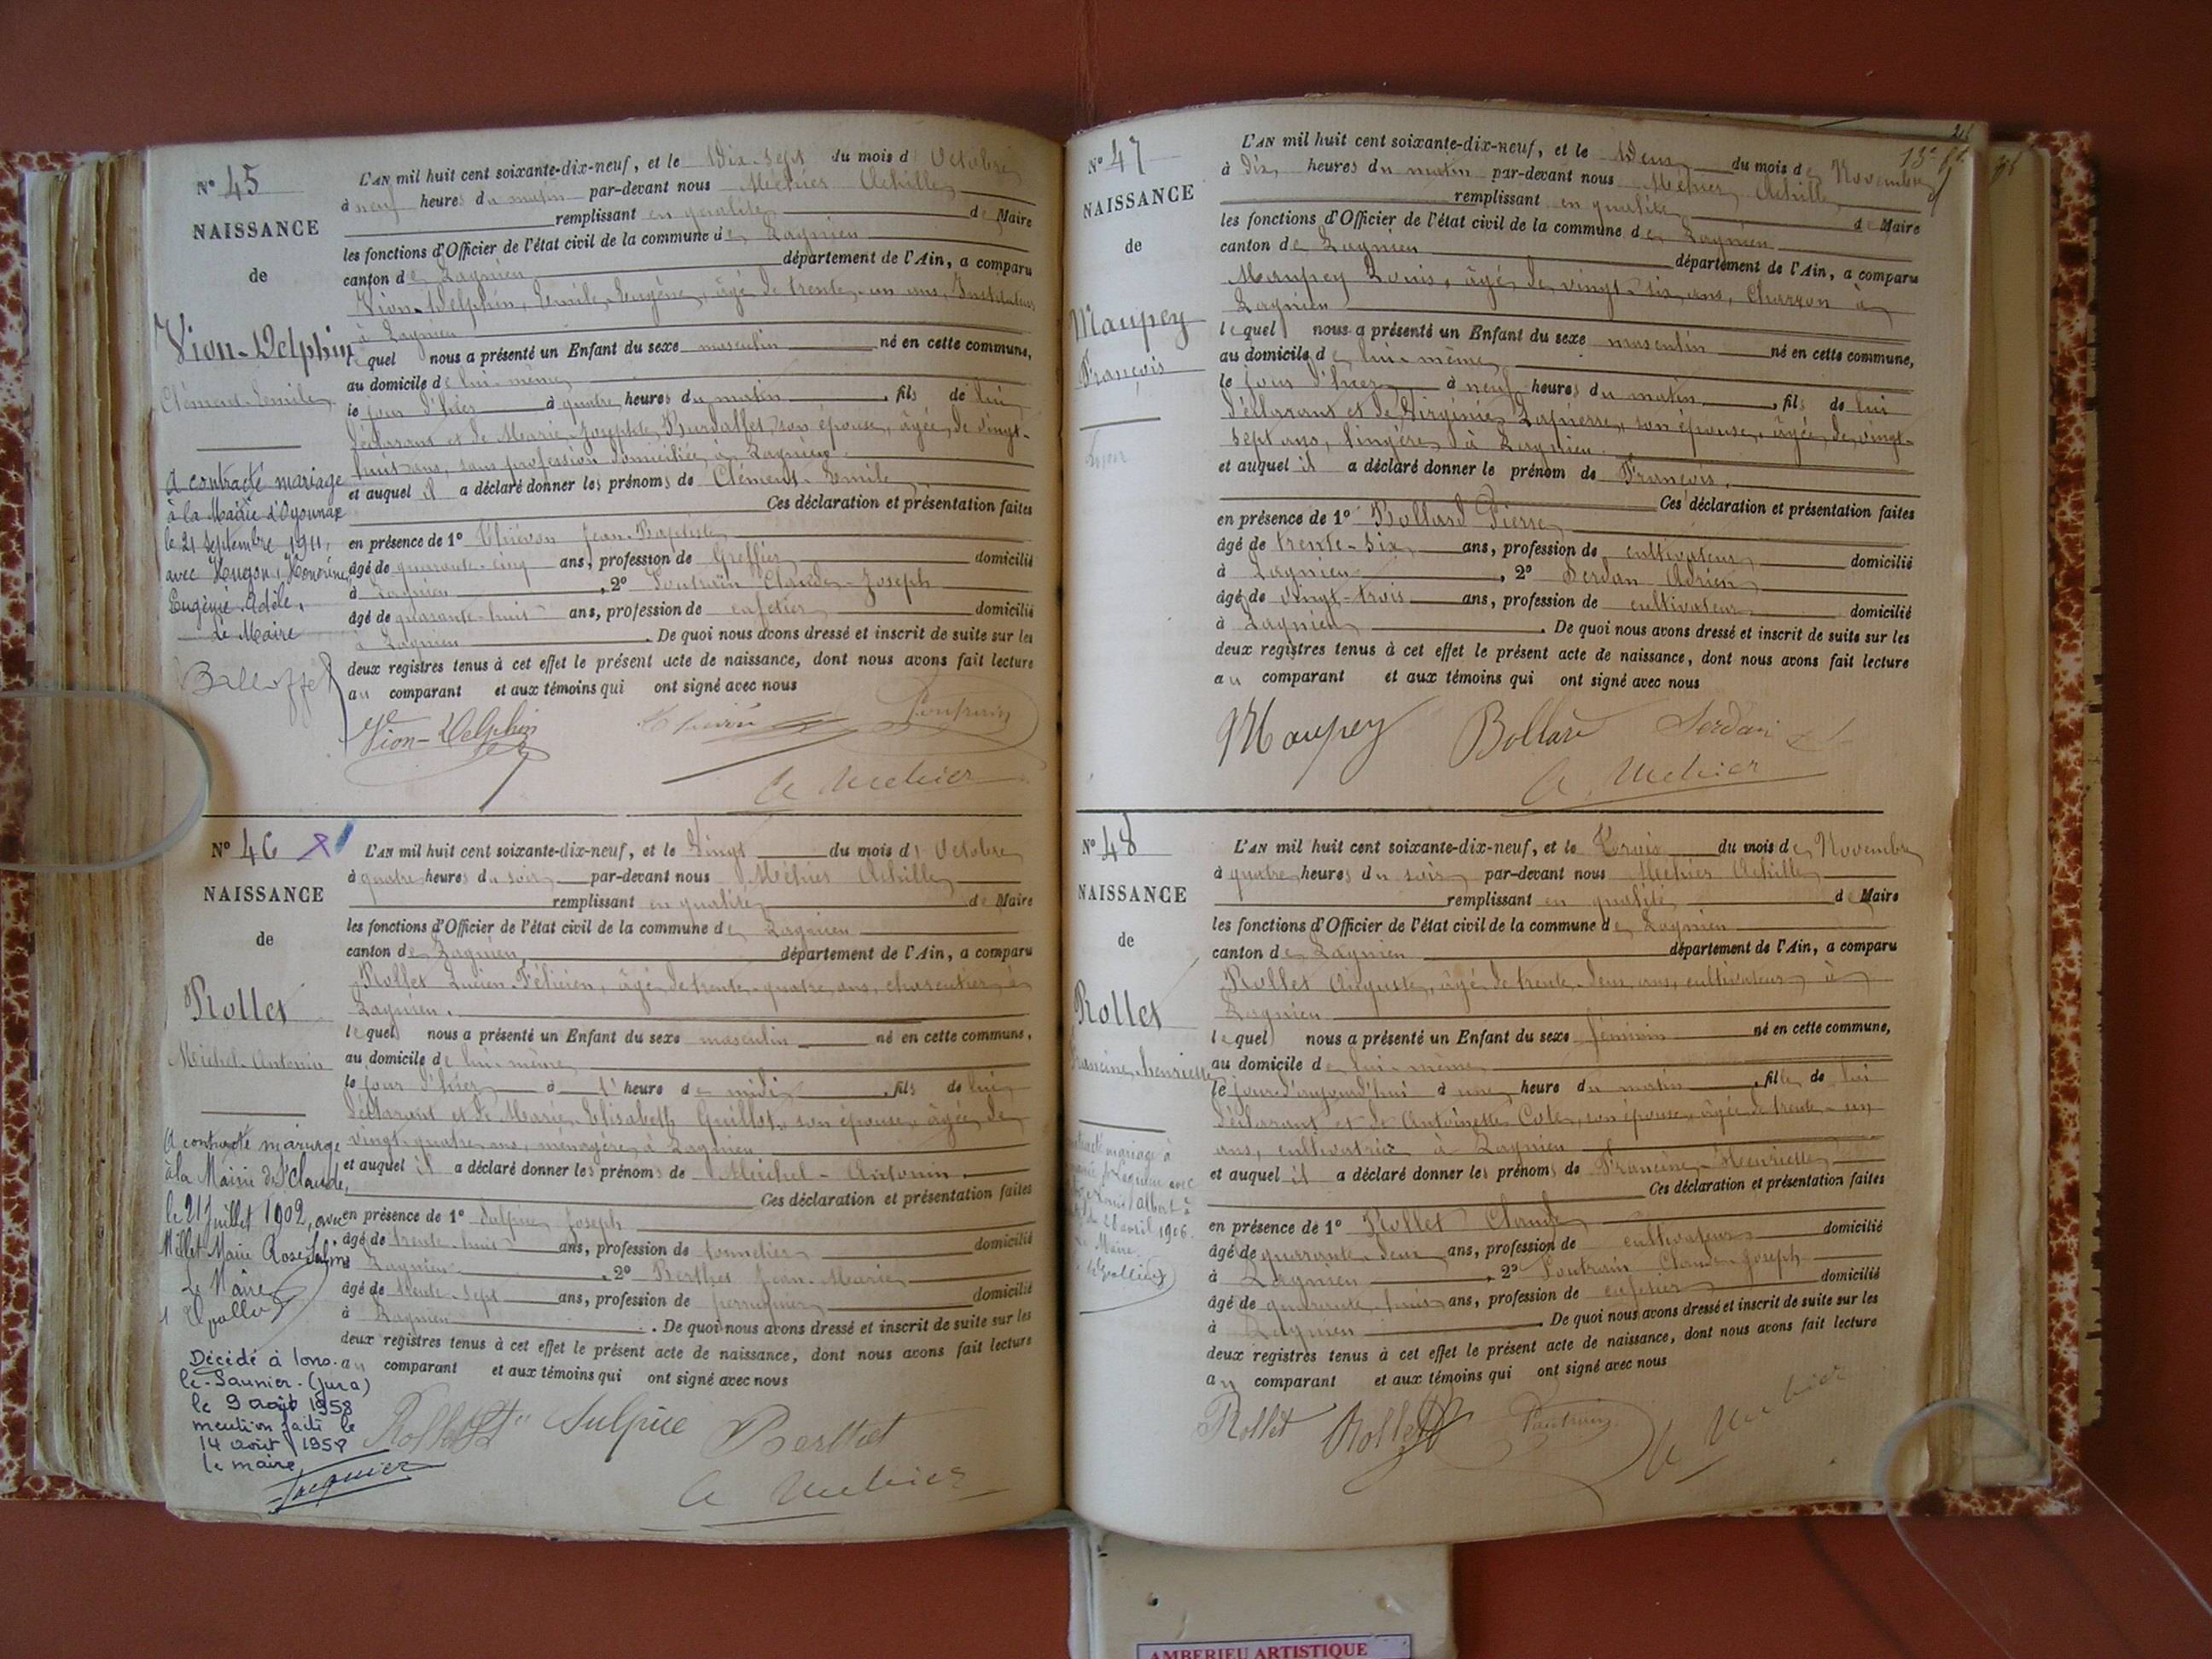 N° 45
NAISSANCE
de
Vion-Delphin
Clément-Emile
A contracté mariage
à la Mairie d'Oyonnax
le 21 Septembre 1911,
avec Hugon, Honorine,
Eugénie Adèle,
Le Maire
L'AN mil huit cent soixante-dix-neuf, et le Dix-Sept du mois d' Octobre
à neuf heures du matin par-devant nous Méhier Achille
remplissant en qualité de Maire
les fonctions d'Officier de l'état civil de la commune de Lagnieu
canton de Lagnieu département de l'Ain, a comparu
Vion-Delphin, Emile-Eugène, âgé de trente-un ans, Instituteur
à Lagnieu
lequel nous a présenté un Enfant du sexe masculin né en cette commune,
au domicile de lui-même
le jour d'hier à quatre heures du matin, fils de lui
déclarant et de Marie-Josephte Burdallet, son épouse, âgée de vingt-
huit ans, sans profession domiciliée à Lagnieu.
et auquel il a déclaré donner les prénoms de Clément-Emile
Ces déclaration et présentation faites
en présence de 1° Thiévon Jean-Baptiste
âgé de quarante-cinq ans, profession de Greffier domicilié
à Lagnieu, 2° Poutrain Claude-Joseph
âgé de quarante-huit ans, profession de cafetier domicilié
à Lagnieu. De quoi nous avons dressé et inscrit de suite sur les
deux registres tenus à cet effet le présent acte de naissance, dont nous avons fait lecture
au comparant et aux témoins qui ont signé avec nous
Vion-Delphin Poutrain
A Méhier
N° 46
NAISSANCE
de
Rollet
Michel-Antonin
A contracté mariage
à la Mairie de St Claude,
le 21 Juillet 1902, avec
Millet Marie Rose
Le Maire
Décédé à Lons-
le-Saunier-(Jura)
le 9 août 1958
mention faite le
14 août 1958
le maire
L'AN mil huit cent soixante-dix-neuf, et le Vingt du mois d' Octobre
à quatre heures du soir par-devant nous Méhier Achille
remplissant en qualité de Maire
les fonctions d'Officier de l'état civil de la commune de Lagnieu
canton de Lagnieu, département de l'Ain, a comparu
Rollet Lucien-Félicien, âgé de trente-quatre ans, charcutier à
Lagnieu.
lequel nous a présenté un Enfant du sexe masculin né en cette commune,
au domicile de lui-même
le jour d'hier à 1 heure de midi, fils de lui
déclarant et de Marie-Elisabeth Guillot, son épouse, âgée de
vingt-quatre ans, ménagère, à Lagnieu
et auquel il a déclaré donner les prénoms de Michel-Antonin.
Ces déclaration et présentation faites
en présence de 1° Sulpice Joseph
âgé de trente-huit ans, profession de tonnelier domicilié
à Lagnieu, 2° Berthet Jean-Marie
âgé de trente-sept ans, profession de perruquier domicilié
à Lagnieu. De quoi nous avons dressé et inscrit de suite sur les
deux registres tenus à cet effet le présent acte de naissance, dont nous avons fait lecture
au comparant et aux témoins qui ont signé avec nous
Rollet Sulpice Berthet
A Méhier
N° 47
NAISSANCE
de
Maupey
François
L'AN mil huit cent soixante-dix-neuf, et le Deux du mois de Novembre
à dix heures du matin par-devant nous Méhier Achille
remplissant en qualité de Maire
les fonctions d'Officier de l'état civil de la commune de Lagnieu
canton de Lagnieu département de l'Ain, a comparu
Maupey Louis, âgé de vingt-six ans, Charron à
Lagnieu
lequel nous a présenté un Enfant du sexe masculin né en cette commune,
au domicile de lui-même
le jour d'hier à neuf heures du matin, fils de lui
déclarant et de Virginie Lapierre, son épouse, âgée de vingt-
sept ans, lingère à Lagnieu.
et auquel il a déclaré donner le prénom de François.
Ces déclaration et présentation faites
en présence de 1° Bollard Pierre
âgé de trente-six ans, profession de cultivateur domicilié
à Lagnieu, 2° Serdan Adrien
âgé de vingt-trois ans, profession de cultivateur domicilié
à Lagnieu. De quoi nous avons dressé et inscrit de suite sur les
deux registres tenus à cet effet le présent acte de naissance, dont nous avons fait lecture
au comparant et aux témoins qui ont signé avec nous
Maupey Bollard Serdan
A Méhier
N° 48
NAISSANCE
de
Rollet
Francine-Henriette
mariage à
avec
Louis Albert
28 avril 1906.
Le Maire
L'AN mil huit cent soixante-dix-neuf, et le Trois du mois de Novembre
à quatre heures du soir par-devant nous Méhier Achille
remplissant en qualité de Maire
les fonctions d'Officier de l'état civil de la commune de Lagnieu
canton de Lagnieu département de l'Ain, a comparu
Rollet Auguste, âgé de trente-deux ans, cultivateur à
Lagnieu
lequel nous a présenté un Enfant du sexe féminin né en cette commune,
au domicile de lui-même
le jour d'aujourd'hui à une heure du matin, fille de lui
déclarant et de Antoinette Cote, son épouse, âgée de trente-un
ans, cultivatrice à Lagnieu
et auquel il a déclaré donner les prénoms de Francine-Henriette
Ces déclaration et présentation faites
en présence de 1° Rollet Claude
âgé de quarante-deux ans, profession de cultivateur domicilié
à Lagnieu, 2° Poutrain Claude-Joseph
âgé de quarante-huit ans, profession de cafetier domicilié
à Lagnieu. De quoi nous avons dressé et inscrit de suite sur les
deux registres tenus à cet effet le présent acte de naissance, dont nous avons fait lecture
au comparant et aux témoins qui ont signé avec nous
Rollet Rollet Poutrain A Méhier
AMBERIEU ARTISTIQUE